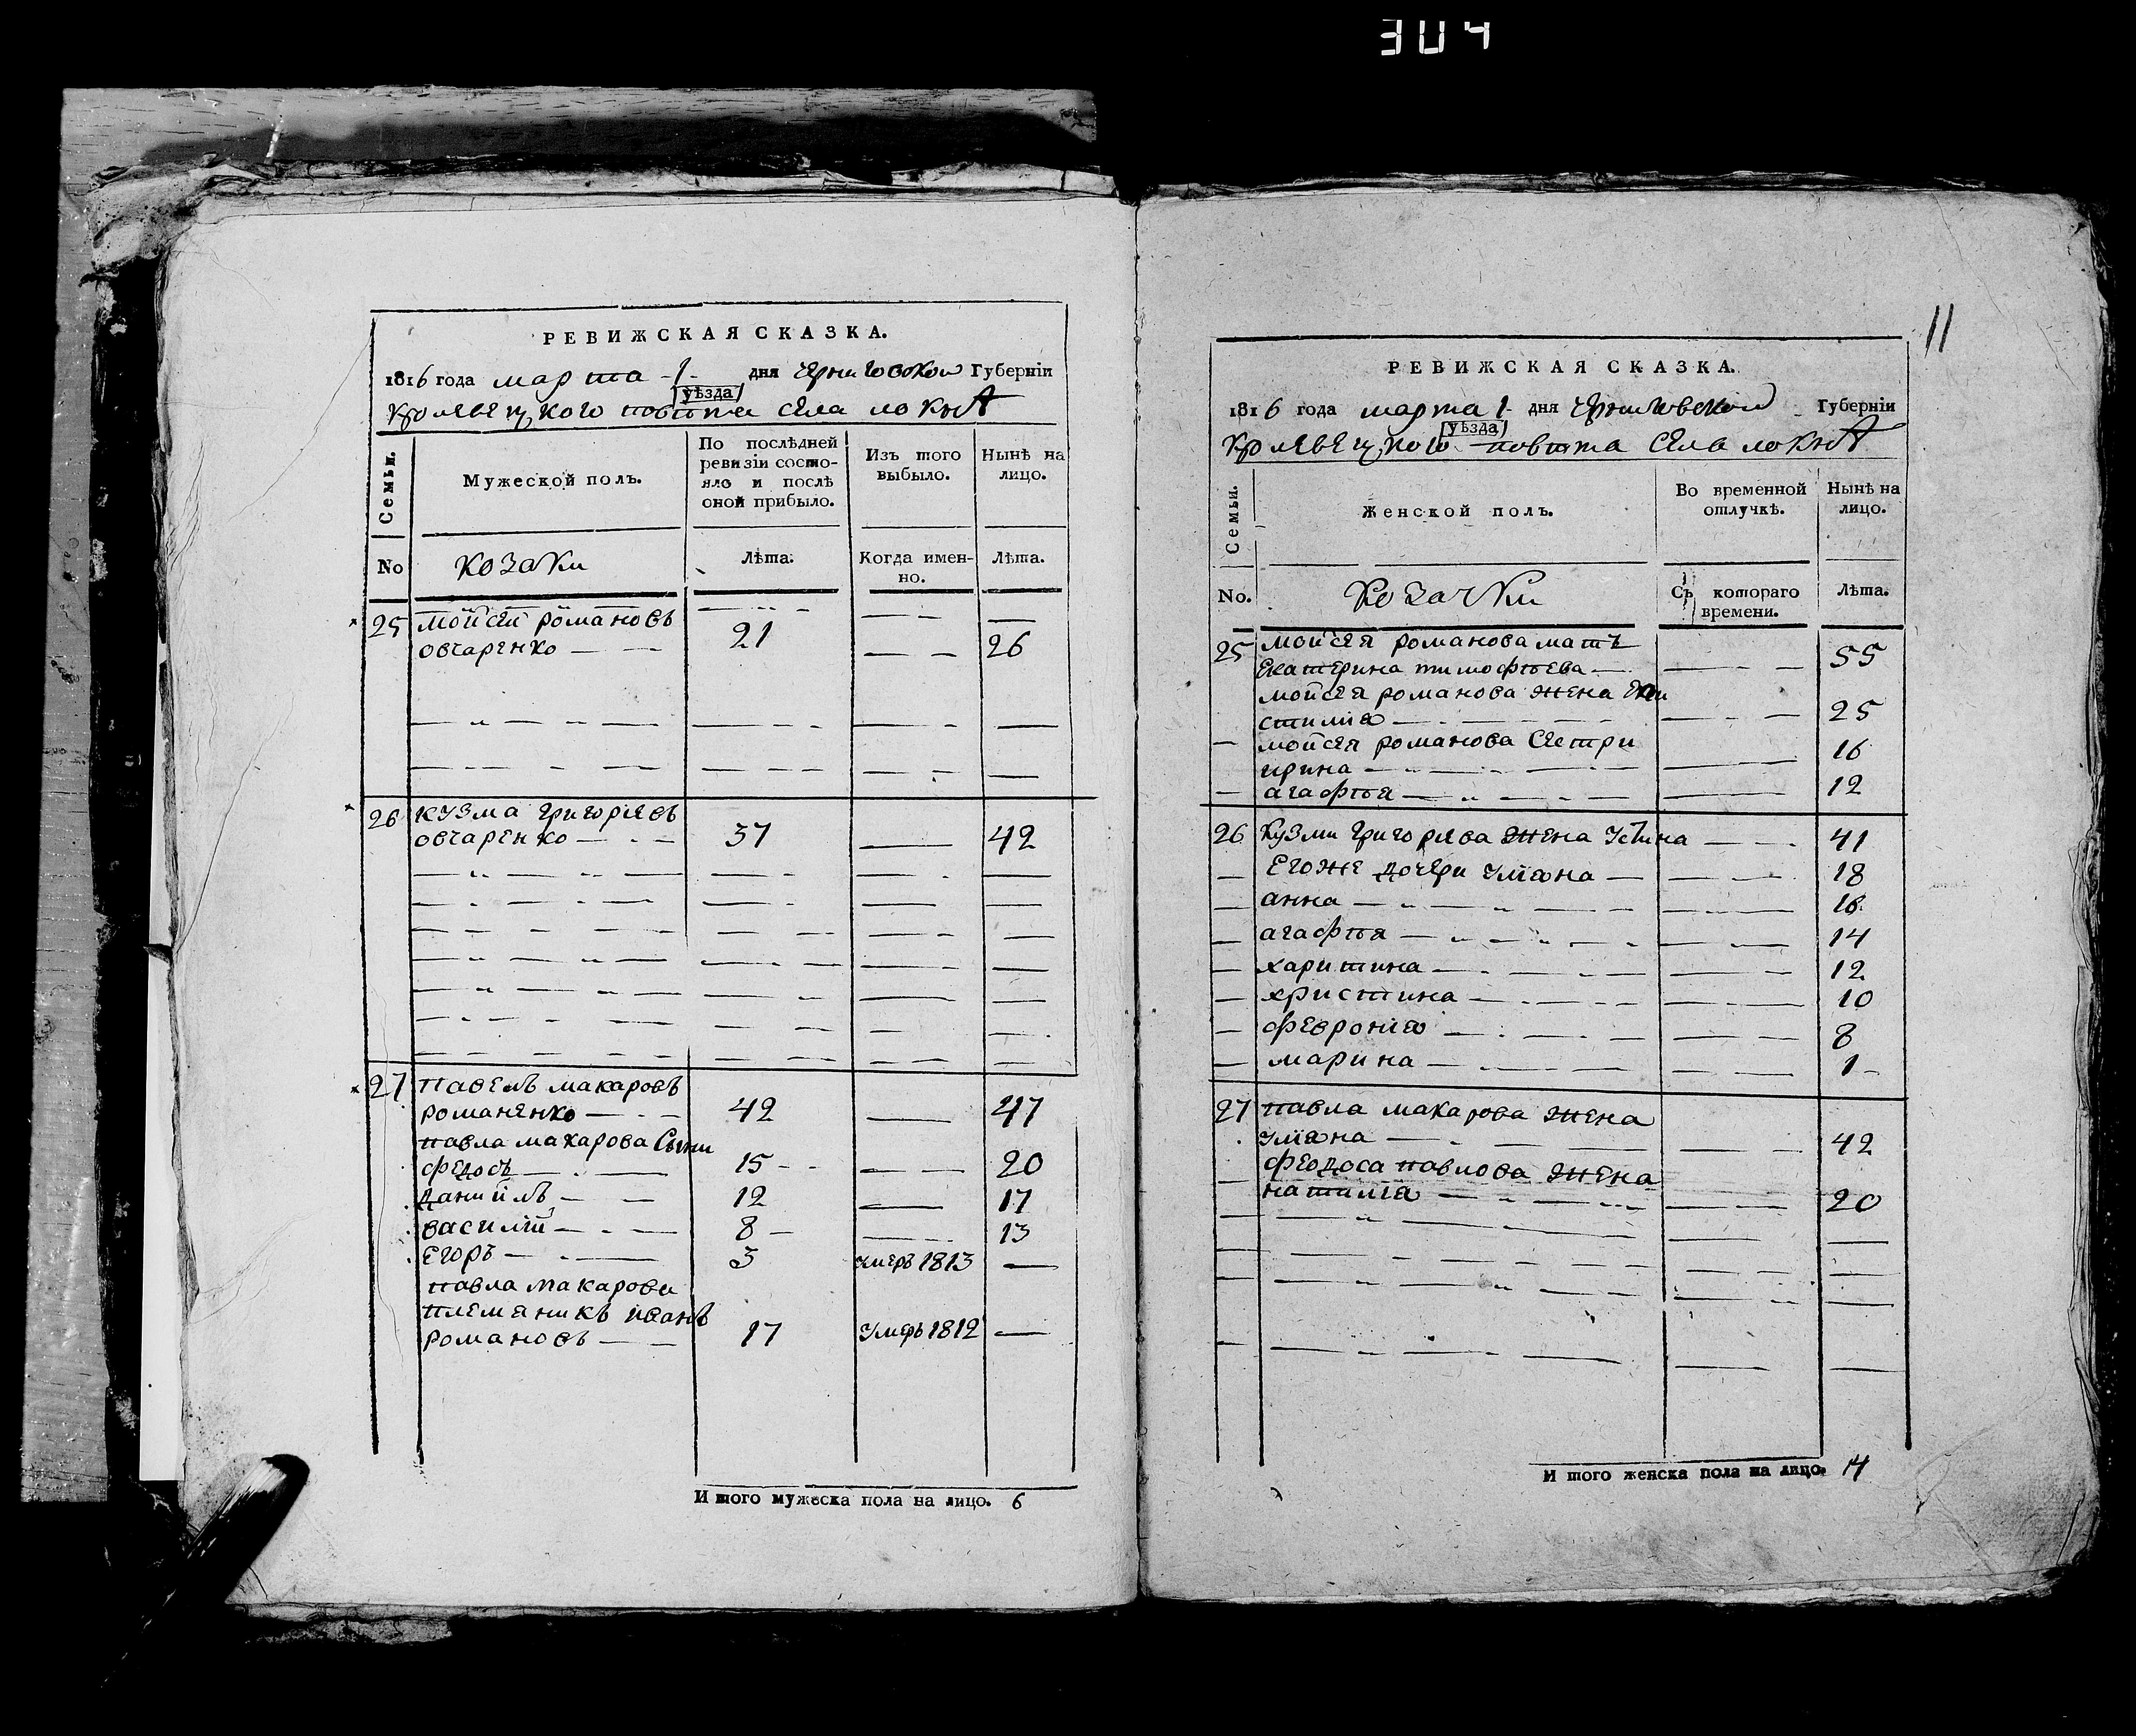 304
РЕВИЖСКАЯ СКАЗКА.
1816 года марта 1 дня Черниговской Губерніи
уѣзда
Кролевецкого повѣта села Локня
Семьи.
Мужеской полъ.
По послѣдней ревизіи состояло и послѣ оной прибыло.
Изъ того выбыло.
Нынѣ на лицо.
No
козаки
Лѣта.
Когда именно.
Лѣта.
25 мойсей романовъ
овчаренко 21 26
26 кузма григориевъ
овчаренко 37 42
27 павелъ макаровъ
романенко 42 47
павла макарова сыни
федосъ 15 20
даниилъ 12 17
василій 8 13
егоръ 3 умеръ 1813
павла макарова
племяникъ иванъ
романовъ 17 умеръ 1812
И того мужеска пола на лицо. 6
11
РЕВИЖСКАЯ СКАЗКА.
1816 года марта 1 дня Черниговской Губерніи
уѣзда
Кролевецкого повѣта села Локня
Семьи.
Женской полъ.
Во временной отлучкѣ.
Нынѣ на лицо.
No.
козачки
Съ котораго времени.
Лѣта.
25 мойсея романова мать
екатерина тимофѣева 55
мойсея романова жена
25
мойсея романова сестри
ирина 16
агафѣя 12
26 кузми григориева жена устина 41
егоже дочери улияна 18
анна 16
агафѣя 14
харитина 12
христина 10
феврониа 8
марина 1
27 павла макарова жена
улияна 42
феодоса павлова жена
наталия 20
И того женска пола на лицо. 14